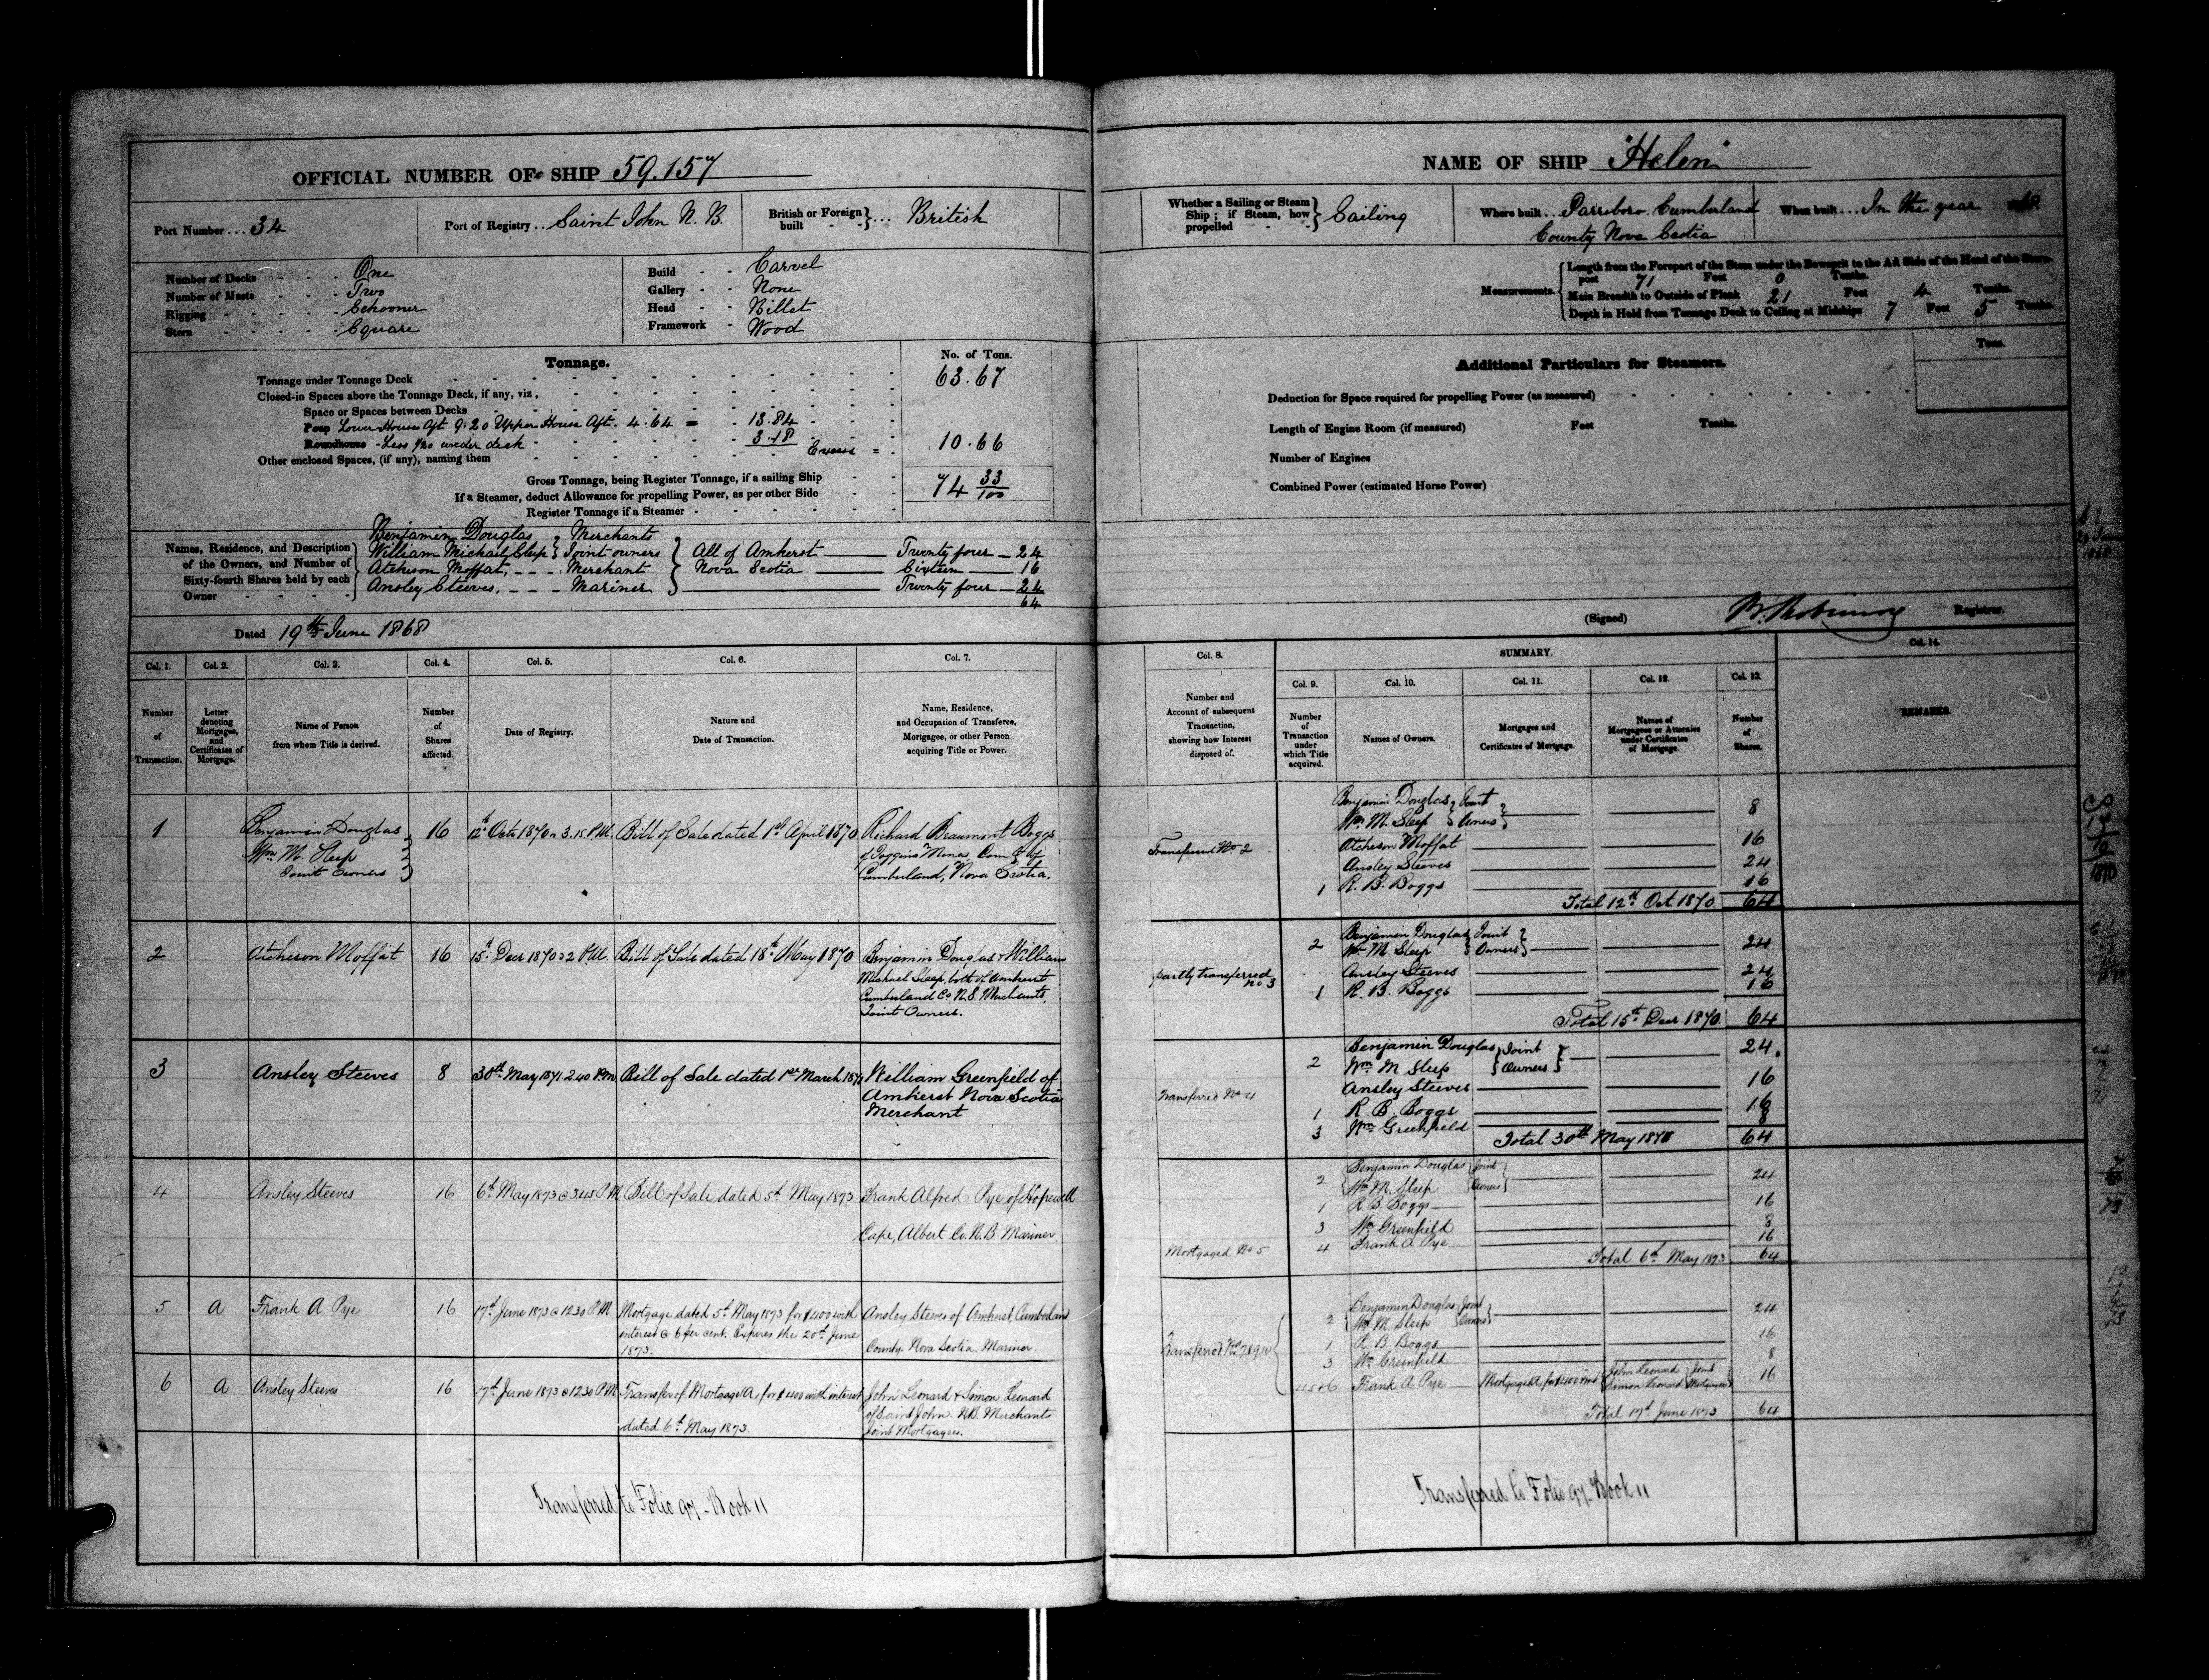 OFFICIAL NUMBER OF SHIP 59.157
Port Number ... 34
Port of Registry .. Saint John N. B.
British or Foreign built } ... British
Number of Decks - - - One
Number of Masts - - - Two
Rigging - - - - Schooner
Stern - - - - Square
Build - - Carvel
Gallery - - None
Head - - Billet
Framework - Wood
Tonnage.
No. of Tons.
Tonnage under Tonnage Deck 63.67
Closed-in Spaces above the Tonnage Deck, if any, viz,
Space or Spaces between Decks
Poop Lower House Aft 9.20 Upper House Aft 4.64 = 13.84
Roundhouse - Less 1/20 under deck 3.18 Excess = 10.66
Other enclosed Spaces, (if any), naming them
Gross Tonnage, being Register Tonnage, if a sailing Ship 74 33/100
If a Steamer, deduct Allowance for propelling Power, as per other Side
Register Tonnage if a Steamer
Names, Residence, and Description of the Owners, and Number of Sixty-fourth Shares held by each Owner
Benjamin Douglas } Merchants
William Michael Sleep } Joint owners } All of Amherst — Twenty four — 24
Atcheson Moffat, - - - Merchant } Nova Scotia — Sixteen — 16
Ansley Steeves, - - - Mariner } — Twenty four — 24
64
Dated 19th June 1868
Col. 1. Col. 2. Col. 3. Col. 4. Col. 5. Col. 6. Col. 7.
Number of Transaction.
Letter denoting Mortgages, and Certificates of Mortgage.
Name of Person from whom Title is derived.
Number of Shares affected.
Date of Registry.
Nature and Date of Transaction.
Name, Residence, and Occupation of Transferee, Mortgagee, or other Person acquiring Title or Power.
1 Benjamin Douglas 16 12th Octr 1870 3.15 P.M. Bill of Sale dated 1st April 1870 Richard Beaumont Boggs
Wm M. Sleep of Joggins Mines, Coun ty of
Joint Owners Cumberland, Nova Scotia.
2 Atcheson Moffat 16 15th Decr 1870 2 P.M. Bill of Sale dated 18th May 1870 Benjamin Douglas & William
Michael Sleep, both of Amherst
Cumberland Co N.S. Merchants,
Joint Owners.
3 Ansley Steeves 8 30th May 1871 2.40 P.M. Bill of Sale dated 1st March 1871 William Greenfield of
Amherst Nova Scotia
Merchant
4 Ansley Steeves 16 6th May 1873 @ 3.45 P.M Bill of Sale dated 5th May 1873 Frank Alfred Pye of Hopewell
Cape, Albert Co. N.B Mariner
5 A Frank A Pye 16 17th June 1873 @ 12.30 P.M Mortgage dated 5th May 1873 for $400 with Ansley Steeves of Amherst, Cumberland
interest @ 6 per cent. Expires the 20th June County Nova Scotia. Mariner.
1873.
6 A Ansley Steeves 16 17th June 1873 @ 12.30 P.M Transfer of Mortgage A, for $400 with interest John Leonard & Simon Leonard
dated 6th May 1873. of Saint John N.B. Merchants
Joint Mortgagees.
Transferred to Folio 97 - Book 11
NAME OF SHIP "Helen"
Whether a Sailing or Steam Ship; if Steam, how propelled } Sailing
Where built ... Parrsboro Cumberland
County Nova Scotia
When built ... In the year
Measurements.
Length from the Forepart of the Stem under the Bowsprit to the Aft Side of the Head of the Stern-
post 71 Feet 0 Tenths.
Main Breadth to Outside of Plank 21 Feet 4 Tenths.
Depth in Hold from Tonnage Deck to Ceiling at Midships 7 Feet 5 Tenths.
Additional Particulars for Steamers.
Tons.
Deduction for Space required for propelling Power (as measured)
Length of Engine Room (if measured) Feet Tenths.
Number of Engines
Combined Power (estimated Horse Power)
(Signed) Registrar.
Col. 8. SUMMARY. Col. 14.
Col. 9. Col. 10. Col. 11. Col. 12. Col. 13.
Number and Account of subsequent Transaction, showing how Interest disposed of.
Number of Transaction under which Title acquired.
Names of Owners.
Mortgages and Certificates of Mortgage.
Names of Mortgagees or Attornies under Certificates of Mortgage.
Number of Shares.
REMARKS.
Benjamin Douglas } Joint
Wm M. Sleep } Owners } 8
Transferred No 2 Atcheson Moffat 16
Ansley Steeves 24
1 R. B. Boggs 16
Total 12th Oct 1870. 64
2 Benjamin Douglas } Joint
Wm M. Sleep } Owners } 24
partly transferred Ansley Steeves 24
no 3 1 R. B. Boggs 16
Total 15th Decr 1870. 64
2 Benjamin Douglas } Joint 24
Wm M Sleep } Owners }
Ansley Steeves 16
Transferred No 4 1 R. B. Boggs 16
3 Wm Greenfield 8
Total 30th May 64
2 Benjamin Douglas } Joint
Wm M. Sleep } Owners } 24
1 R. B. Boggs 16
3 Wm Greenfield 8
Mortgaged No 5 4 Frank A Pye 16
Total 6th May 1873 64
2 Benjamin Douglas } Joint
Wm M. Sleep } Owners } 24
1 R B Boggs 16
3 Wm Greenfield 8
4 5 & 6 Frank A Pye Mortgage A, for $400 John Leonard } Joint
Simon Leonard } Mortgagees } 16
Total 17th June 1873 64
Transferred to Folio 97 - Book 11